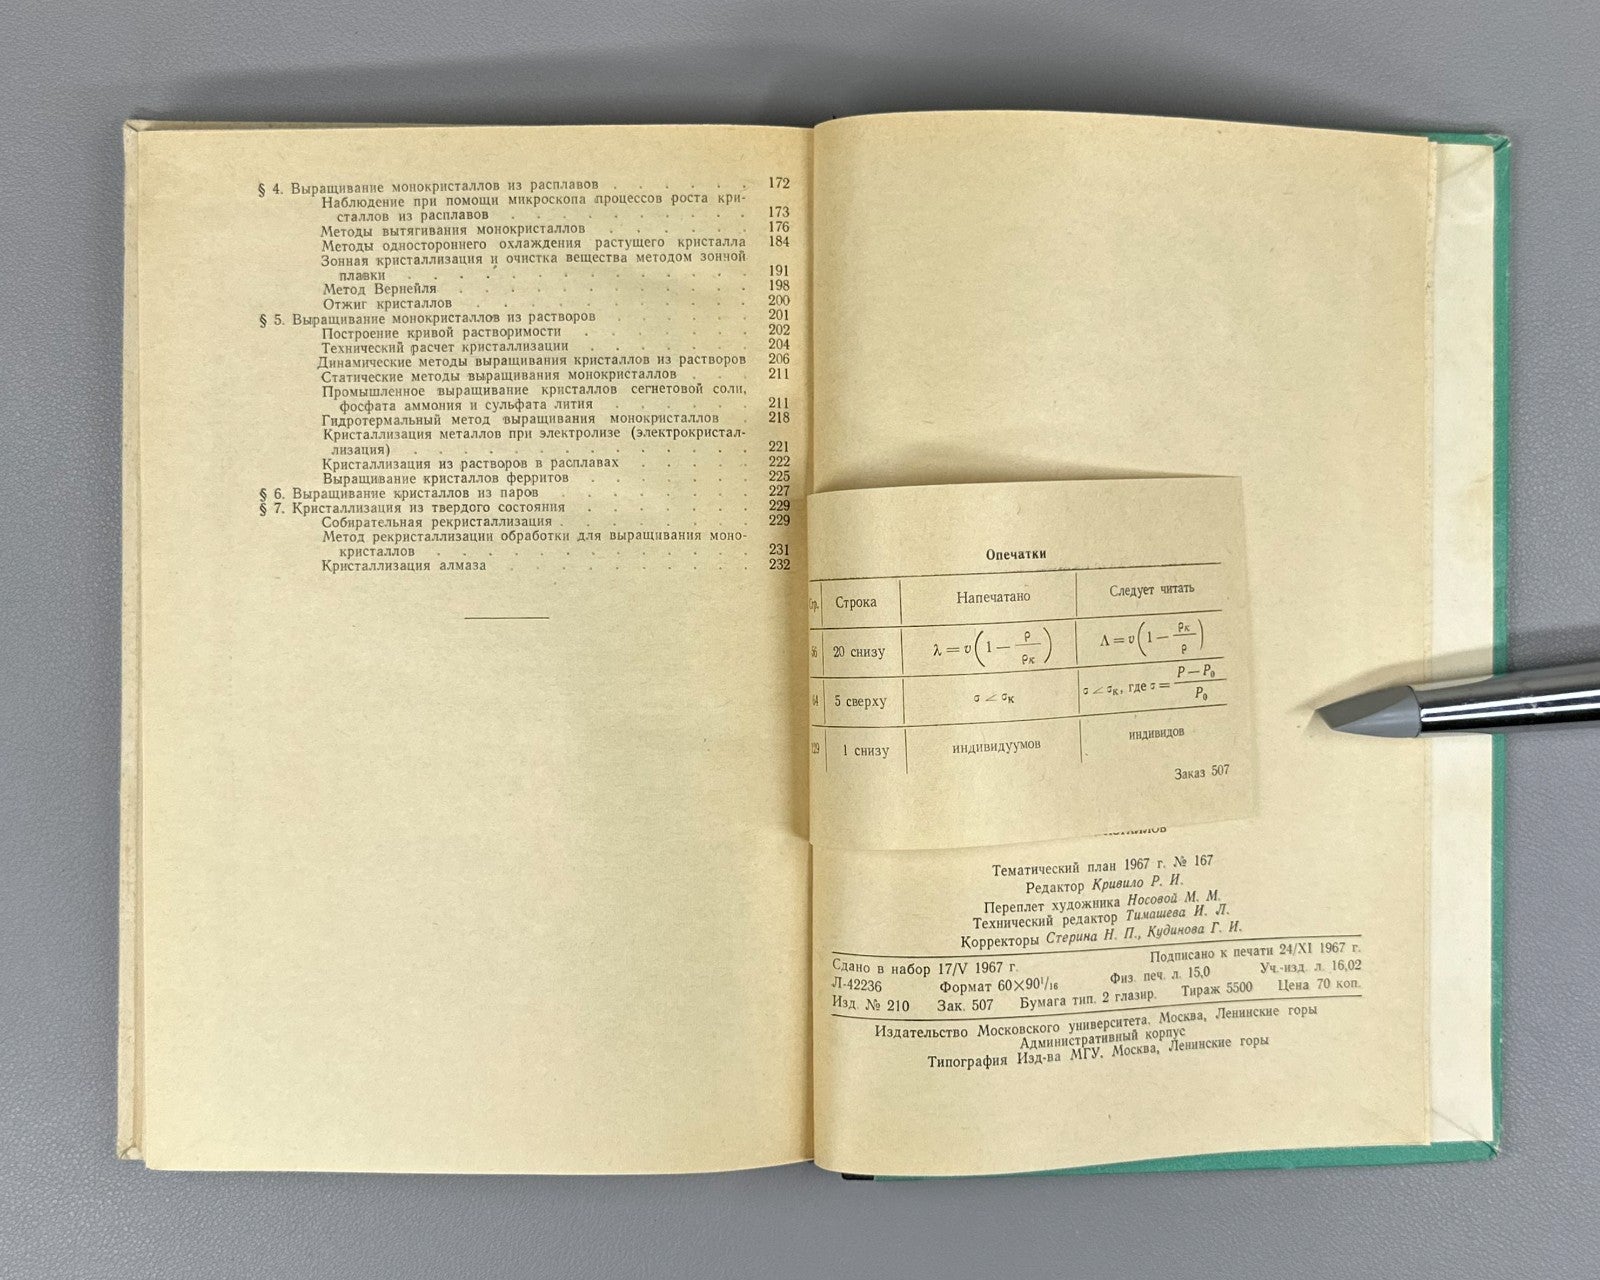 § 4. Выращивание монокристаллов из расплавов . . . . . . 172
Наблюдение при помощи микроскопа процессов роста кри-
сталлов из расплавов . . . . . . . . . 173
Методы вытягивания монокристаллов . . . . . . 176
Методы одностороннего охлаждения растущего кристалла 184
Зонная кристаллизация и очистка вещества методом зонной
плавки . . . . . . . . . . . . . 191
Метод Вернейля . . . . . . . . . . . 198
Отжиг кристаллов . . . . . . . . . . . 200
§ 5. Выращивание монокристаллов из растворов . . . . . . 201
Построение кривой растворимости . . . . . . . 202
Технический расчет кристаллизации . . . . . . 204
Динамические методы выращивания кристаллов из растворов 206
Статические методы выращивания монокристаллов . . . 211
Промышленное выращивание кристаллов сегнетовой соли,
фосфата аммония и сульфата лития . . . . . . 211
Гидротермальный метод выращивания монокристаллов . 218
Кристаллизация металлов при электролизе (электрокристал-
лизация) . . . . . . . . . . . . . 221
Кристаллизация из растворов в расплавах . . . . . 222
Выращивание кристаллов ферритов . . . . . . . 225
§ 6. Выращивание кристаллов из паров . . . . . . . . 227
§ 7. Кристаллизация из твердого состояния . . . . . . . 229
Собирательная рекристаллизация . . . . . . . . 229
Метод рекристаллизации обработки для выращивания моно-
кристаллов . . . . . . . . . . . . 231
Кристаллизация алмаза . . . . . . . . . . 232
Опечатки
Строка Напечатано Следует читать
20 снизу λ = v(1 − ρ/ρк) Λ = v(1 − ρк/ρ)
5 сверху σ ∠ σк σ ∠ σк, где σ = P − P₀/P₀
1 снизу индивидуумов индивидов
Заказ 507
Тематический план 1967 г. № 167
Редактор Кривило Р. И.
Переплет художника Носовой М. М.
Технический редактор Тимашева И. Л.
Корректоры Стерина Н. П., Кудинова Г. И.
Сдано в набор 17/V 1967 г. Подписано к печати 24/XI 1967 г.
Л-42236 Формат 60×90¹/₁₆ Физ. печ. л. 15,0 Уч.-изд. л. 16,02
Изд. № 210 Зак. 507 Бумага тип. 2 глазир. Тираж 5500 Цена 70 коп.
Издательство Московского университета. Москва, Ленинские горы
Административный корпус
Типография Изд-ва МГУ. Москва, Ленинские горы